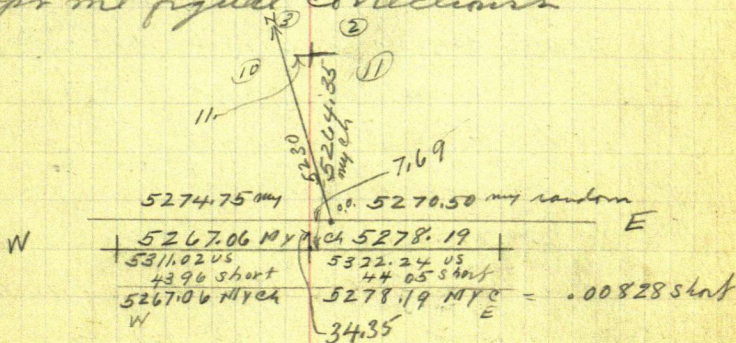 me figure corrections
③ ②
10 11
11
5230
5264.35
my ch
7.69
5274.75 my 0.0. 5270.50 my random
E
W
5267.06 My ch 5278.19
5311.02 us 5322.24 us
4396 short 44 05 short
5267.06 MyCh 5278.19 MYC = .00828 short
W E
34.35